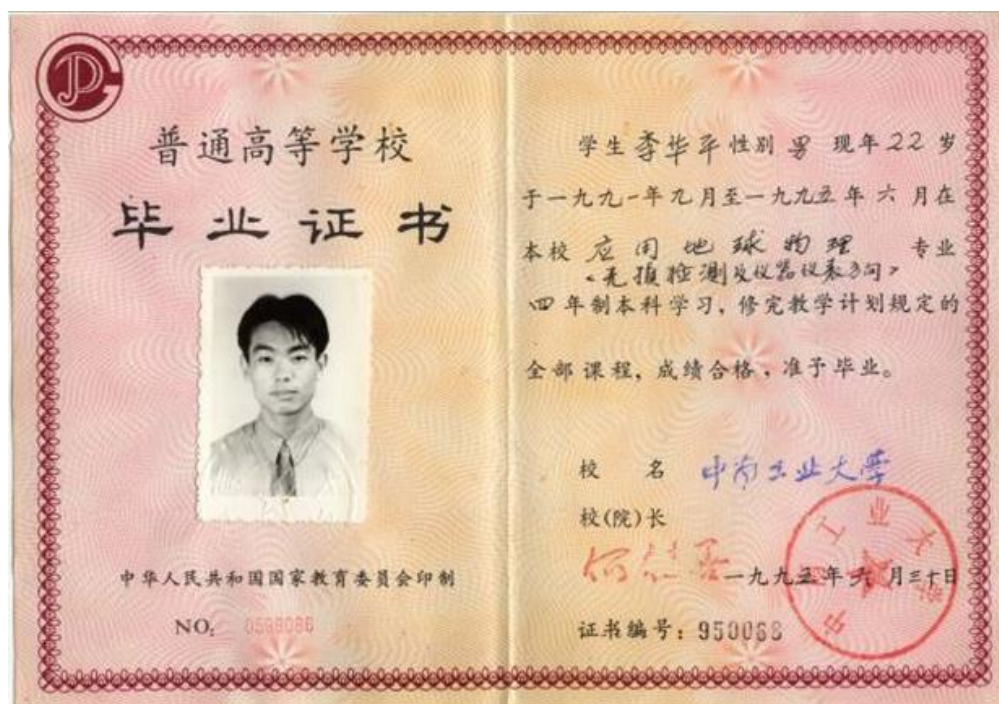 普通高等学校
毕业证书
中华人民共和国国家教育委员会印制
NO: 0598086
学生 李华平 性别 男 现年 22 岁
于一九九一年九月至一九九五年六月在
本校 应用地球物理 专业
<无损检测及仪器仪表方向>
四年制本科学习，修完教学计划规定的
全部课程，成绩合格，准予毕业。
校 名 中南工业大学
校(院)长
一九九五年六月三十日
证书编号：950068
中南工业大学